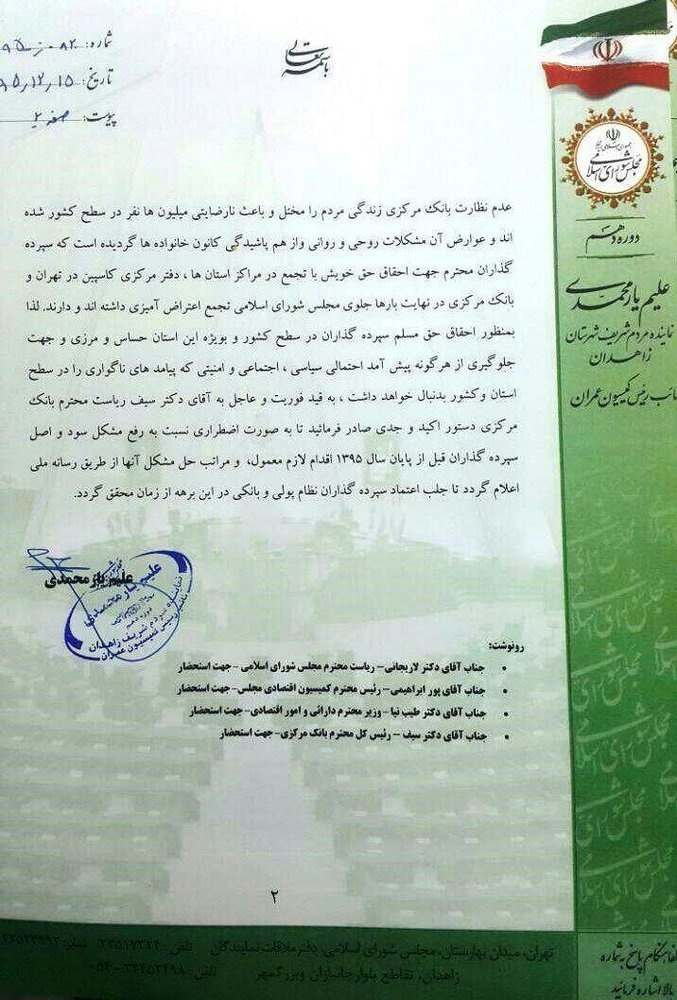 باسمه تعالی
شماره: ۰۸۲
تاریخ: ۹۵,۱۲,۱۵
پیوست: صفحه ۲
مجلس شورای اسلامی
دوره دهم
علیم یارمحمدی
نماینده مردم شریف شهرستان
زاهدان
نائب رئیس کمیسیون عمران
عدم نظارت بانک مرکزی زندگی مردم را مختل و باعث نارضایتی میلیون ها نفر در سطح کشور شده
اند و عوارض آن مشکلات روحی و روانی واز هم پاشیدگی کانون خانواده ها گردیده است که سپرده
گذاران محترم جهت احقاق حق خویش با تجمع در مراکز استان ها ، دفتر مرکزی کاسپین در تهران و
بانک مرکزی در نهایت بارها جلوی مجلس شورای اسلامی تجمع اعتراض آمیزی داشته اند و دارند. لذا
بمنظور احقاق حق مسلم سپرده گذاران در سطح کشور و بویژه این استان حساس و مرزی و جهت
جلوگیری از هرگونه پیش آمد احتمالی سیاسی ، اجتماعی و امنیتی که پیامد های ناگواری را در سطح
استان وکشور بدنبال خواهد داشت ، به قید فوریت و عاجل به آقای دکتر سیف ریاست محترم بانک
مرکزی دستور اکید و جدی صادر فرمائید تا به صورت اضطراری نسبت به رفع مشکل سود و اصل
سپرده گذاران قبل از پایان سال ۱۳۹۵ اقدام لازم معمول، و مراتب حل مشکل آنها از طریق رسانه ملی
اعلام گردد تا جلب اعتماد سپرده گذاران نظام پولی و بانکی در این برهه از زمان محقق گردد.
علیم یارمحمدی
علیم یارمحمدی
نماینده مردم شریف زاهدان
نائب رئیس کمیسیون عمران
رونوشت:
• جناب آقای دکتر لاریجانی – ریاست محترم مجلس شورای اسلامی – جهت استحضار
• جناب آقای پور ابراهیمی – رئیس محترم کمیسیون اقتصادی مجلس- جهت استحضار
• جناب آقای دکتر طیب نیا – وزیر محترم دارائی و امور اقتصادی- جهت استحضار
• جناب آقای دکتر سیف – رئیس کل محترم بانک مرکزی- جهت استحضار
۲
تهران، میدان بهارستان، مجلس شورای اسلامی، دفتر ملاقات نمایندگان تلفن: ۳۳۵۱۷۳۲۴ نمابر: ۳۳۵۲۳۹۹۲
زاهدان، تقاطع بلوار جانبازان و بزرگمهر تلفن: ۳۳۲۵۲۴۹۸-۰۵۴
لطفا هنگام پاسخ به شماره
بالا اشاره فرمائید